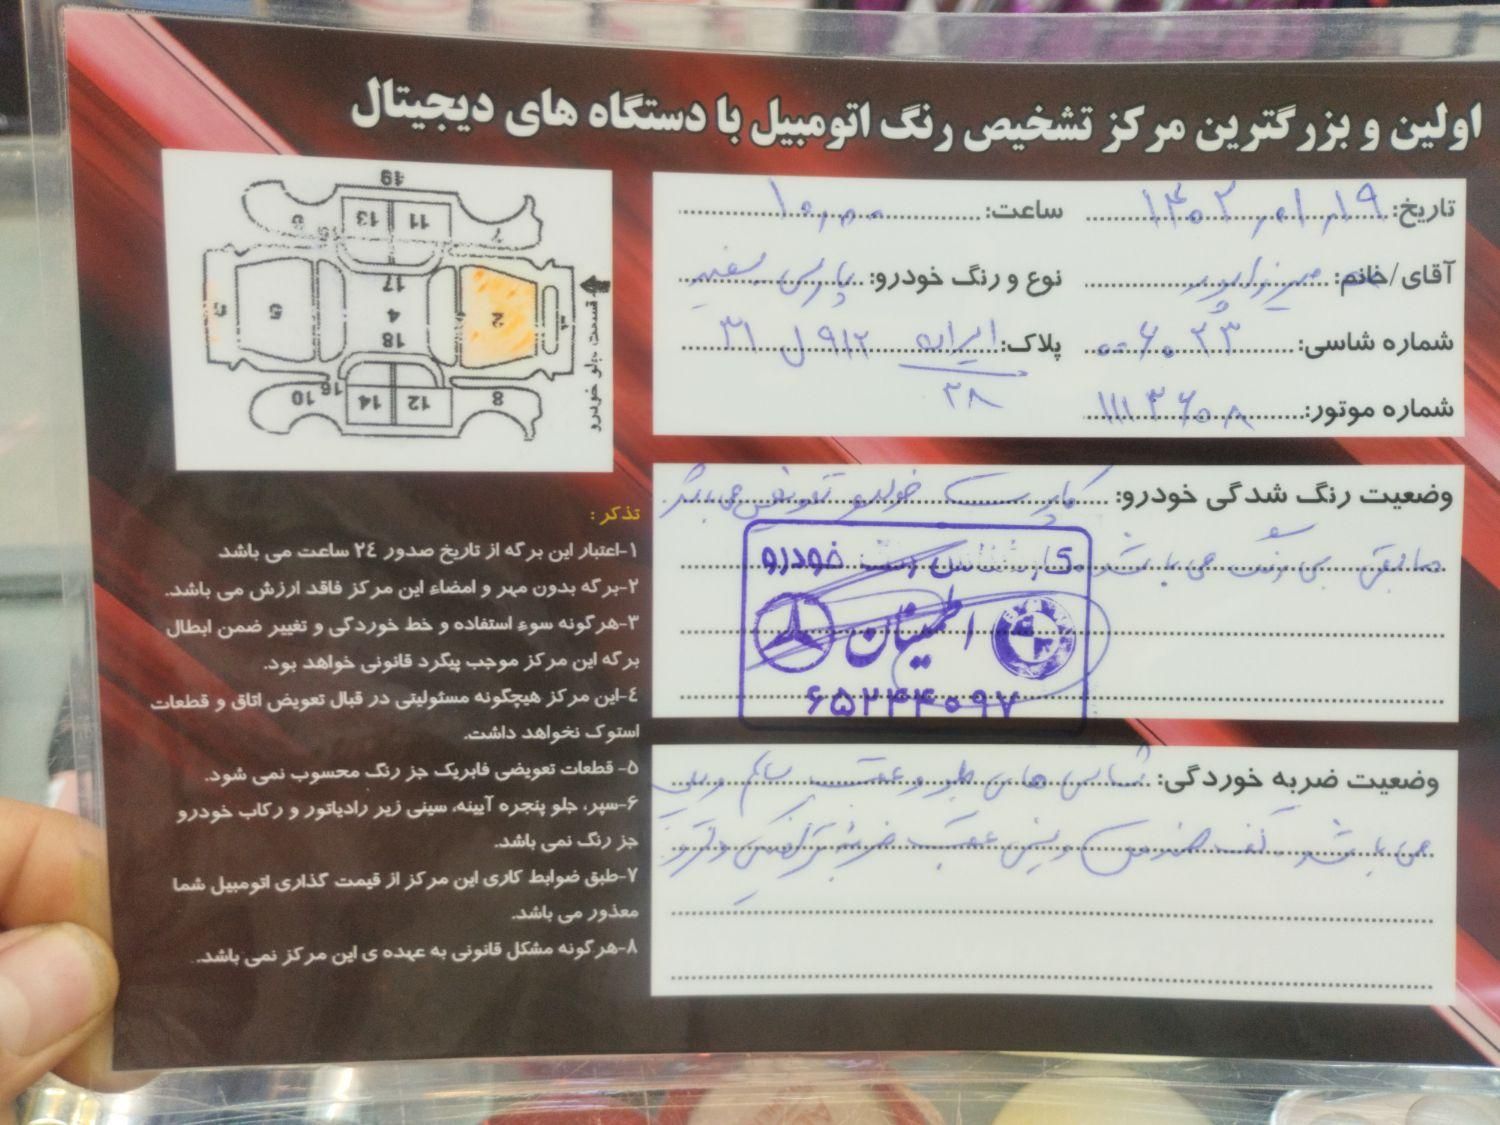 اولین و بزرگترین مرکز تشخیص رنگ اتومبیل با دستگاه های دیجیتال
تاریخ: ۱۴۰۲,۰۱,۱۹ ساعت: ۱۰,۰۰
آقای/خانم: نوع و رنگ خودرو: پارس سفید
شماره شاسی: ۰۰۶۰۲۳ پلاک: ایران ۹۱۲ ل ۳۱
۲۸
شماره موتور: ۱۱۱۳۶۰۸
وضعیت رنگ شدگی خودرو: کاپوت خودرو تعویض می باشد
مابقی بی رنگ می باشد
کارشناس رنگ خودرو
اطمینان
۶۵۲۴۴۰۹۷
وضعیت ضربه خوردگی: شاسی های جلو و عقب سالم و پلمپ
می باشد. کف صندوق و سینی عقب ضربه
19
13 11
9 7
17
3 5 4 2 1
18
16
10 14 12 8
قسمت جلو خودرو
تذکر:
۱-اعتبار این برگه از تاریخ صدور ۲٤ ساعت می باشد
۲-برگه بدون مهر و امضاء این مرکز فاقد ارزش می باشد.
۳-هرگونه سوء استفاده و خط خوردگی و تغییر ضمن ابطال
برگه این مرکز موجب پیگرد قانونی خواهد بود.
٤-این مرکز هیچگونه مسئولیتی در قبال تعویض اتاق و قطعات
استوک نخواهد داشت.
۵- قطعات تعویضی فابریک جز رنگ محسوب نمی شود.
۶-سپر، جلو پنجره آیینه، سینی زیر رادیاتور و رکاب خودرو
جز رنگ نمی باشد.
۷-طبق ضوابط کاری این مرکز از قیمت گذاری اتومبیل شما
معذور می باشد.
۸-هرگونه مشکل قانونی به عهده ی این مرکز نمی باشد.